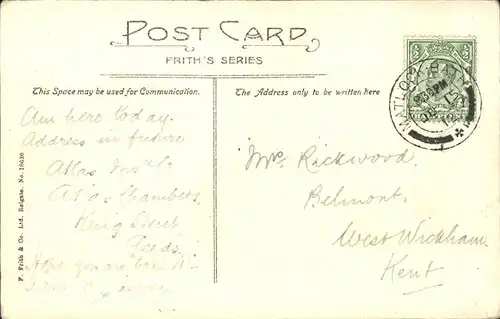 POST CARD
FRITH'S SERIES
This Space may be used for Communication.
The Address only to be written here
Am here today.
Address in future
Atlas
Atlas Chambers,
King Street
Leeds.
Hope you are
Mrs Rickwood,
Belmont,
West Wickham
Kent
F. Frith & Co. Ltd. Reigate. No. 18626
MATLOCK BATH